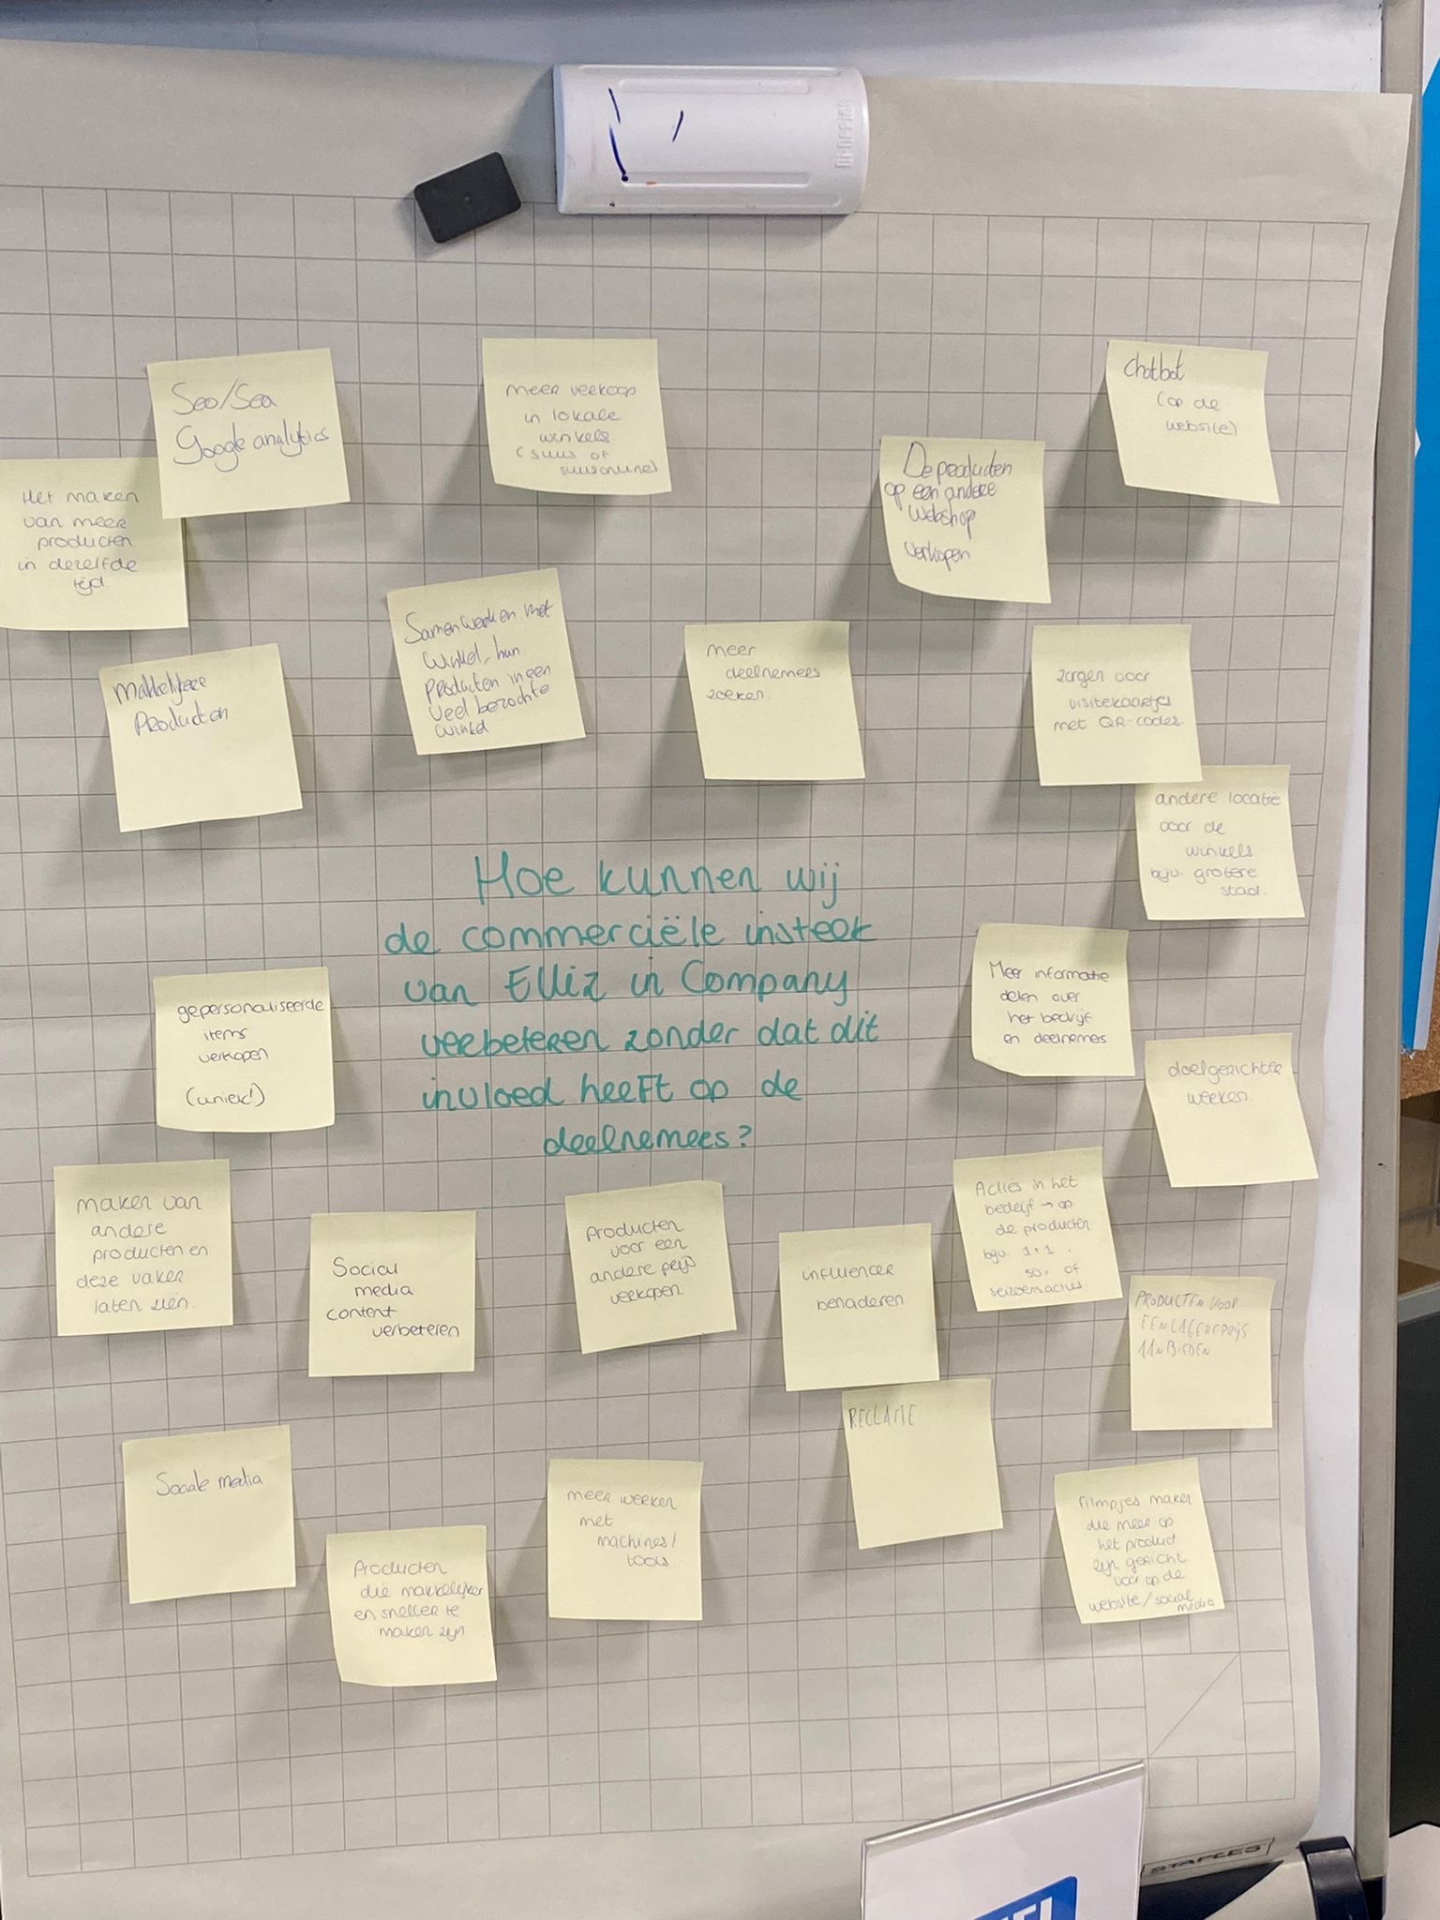 Seo/Sea
Google analytics
meer verkoop
in lokale
winkels
(suus of
chatbot
(op de
website)
De producten
op een andere
webshop
verkopen
Het maken
van meer
producten
in dezelfde
tijd
Samenwerken met
winkel, hun
producten in een
veel bezochte
winkel
meer
deelnemers
zoeken.
zorgen voor
visitekaartjes
met QR-codes.
Makkelijkere
Producten
andere locatie
voor de
winkels
bijv. grotere
stad.
Hoe kunnen wij
de commerciële insteek
van Elliz in Company
verbeteren zonder dat dit
invloed heeft op de
deelnemers?
Meer informatie
delen over
het bedrijf
en deelnemers
gepersonaliseerde
items
verkopen
(uniek!)
doelgerichter
werken.
maken van
andere
producten en
deze vaker
laten zien.
Social
media
content
verbeteren
Producten
voor een
andere prijs
verkopen.
influencer
benaderen
Acties in het
bedrijf → op
de producten
bijv. 1+1.
50% of
seizoensacties
PRODUCTEN VOOR
EEN LAGERE PRIJS
AANBIEDEN
RECLAME
Sociale media
meer werken
met
machines/
tools
Filmpjes maken
die meer op
het product
zijn gericht
voor op de
website/social
media
Producten
die makkelijker
en sneller te
maken zijn
STAPLES